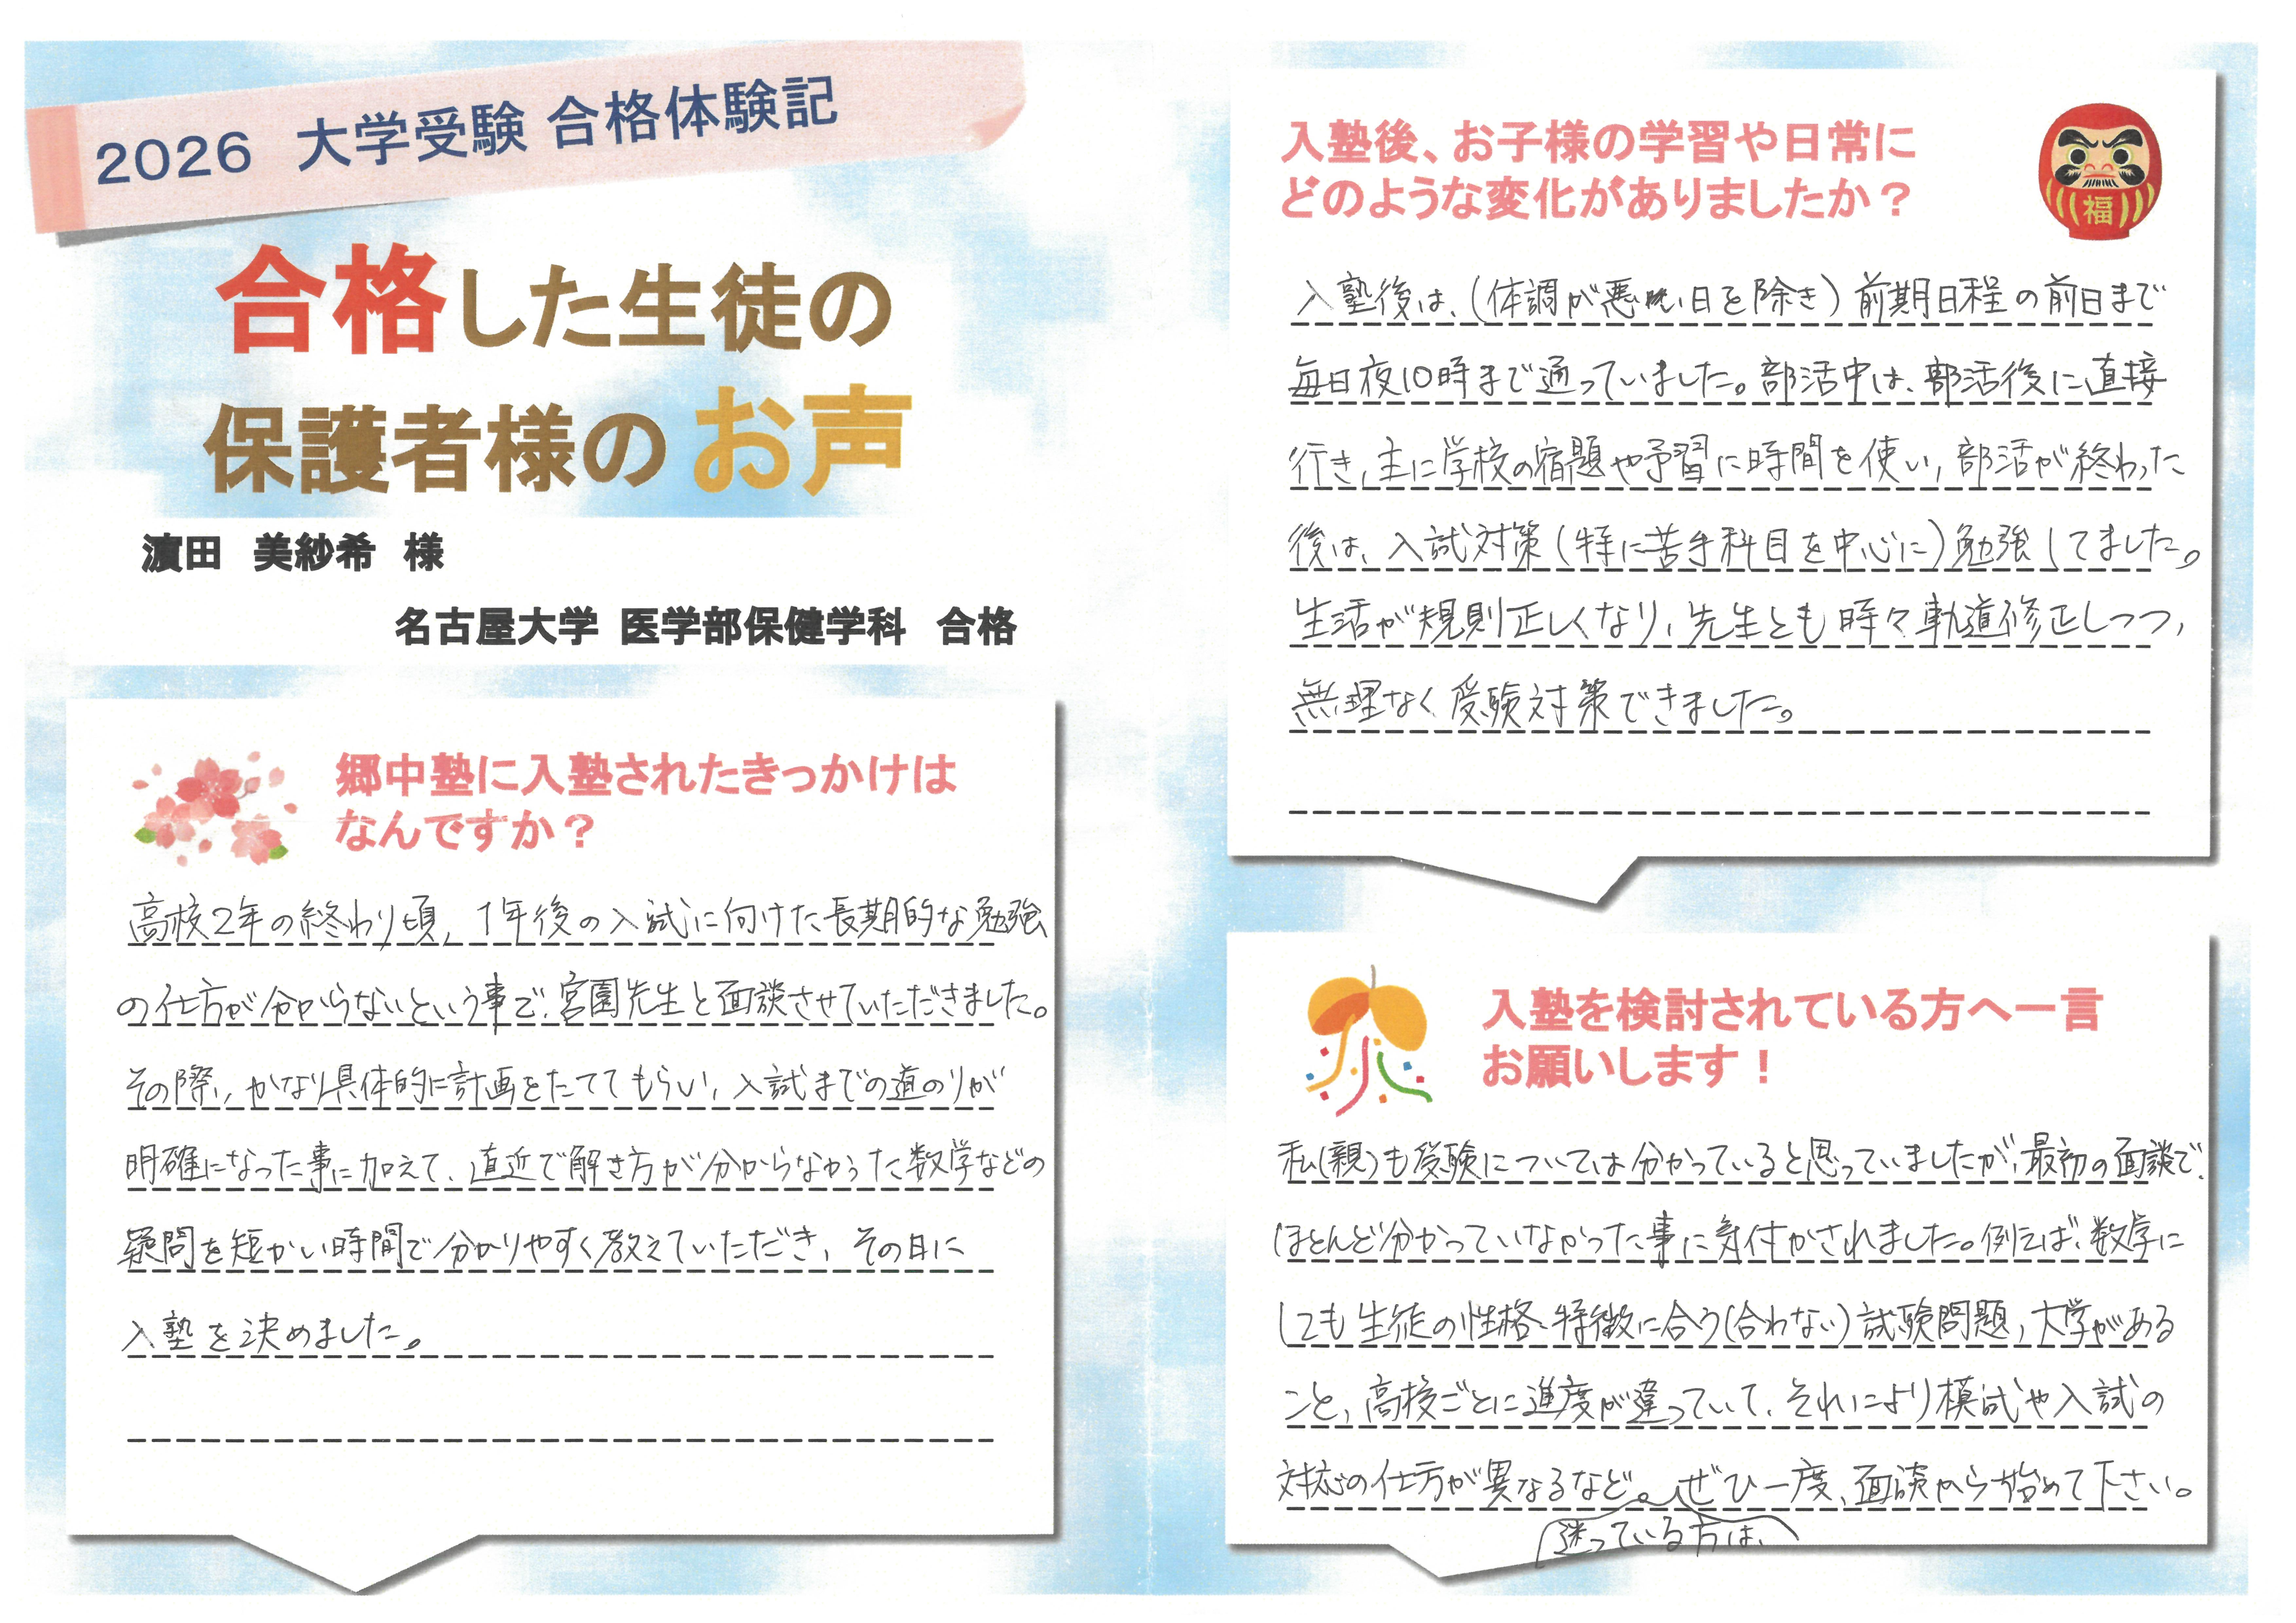 2026 大学受験 合格体験記
合格した生徒の
保護者様のお声
濵田 美紗希 様
名古屋大学 医学部保健学科 合格
郷中塾に入塾されたきっかけは
なんですか？
高校2年の終わり頃，1年後の入試に向けた長期的な勉強
の仕方が分からないという事で、宮園先生と面談させていただきました。
その際，かなり具体的に計画をたててもらい，入試までの道のりが
明確になった事に加えて、直近で解き方が分からなかった数学などの
疑問を短かい時間で分かりやすく教えていただき，その日に
入塾を決めました。
入塾後、お子様の学習や日常に
どのような変化がありましたか？
福
入塾後は、(体調が悪い日を除き) 前期日程の前日まで
毎日夜10時まで通っていました。部活中は、部活後に直接
行き，主に学校の宿題や予習に時間を使い，部活が終わった
後は、入試対策(特に苦手科目を中心に)勉強してました。
生活が規則正しくなり，先生とも時々軌道修正しつつ，
無理なく受験対策できました。
入塾を検討されている方へ一言
お願いします！
私(親)も受験については分かっていると思っていましたが、最初の面談で、
ほとんど分かっていなかった事に気付かされました。例えば、数学に
しても生徒の性格・特徴に合う(合わない)試験問題，大学がある
こと，高校ごとに進度が違っていて、それにより模試や入試の
対応の仕方が異なるなど。ぜひ一度、面談から始めて下さい。
迷っている方は、